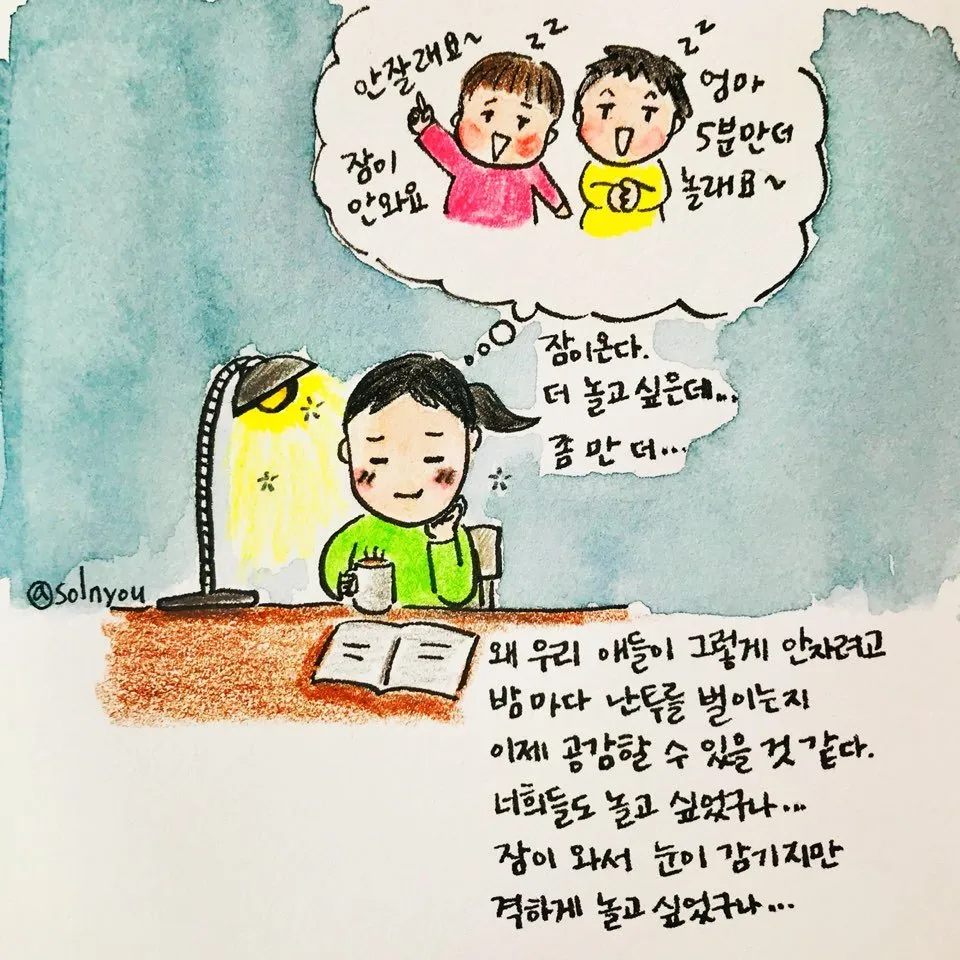 zz
zz
안잘래요~
잠이
안와요
엄마
5분만더
놀래요~
잠이온다.
더 놀고 싶은데...
좀 만 더...
@solnyou
왜 우리 애들이 그렇게 안자려고
밤마다 난투를 벌이는지
이제 공감할 수 있을 것 같다.
너희들도 놀고 싶었구나...
잠이 와서 눈이 감기지만
격하게 놀고 싶었구나...